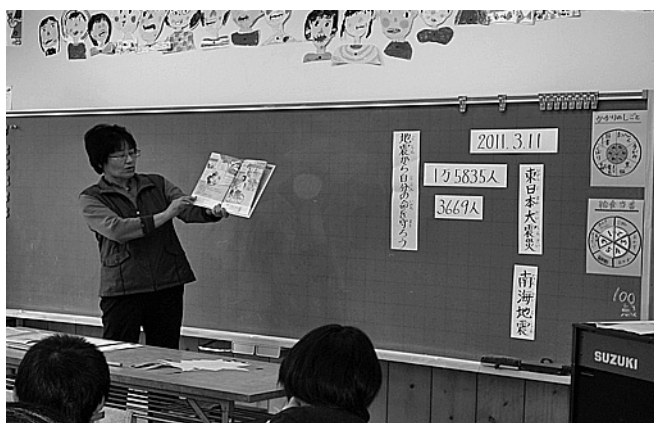 地震から自分の命を守ろう
2011.3.11
1万5835人
3669人
東日本大震災
南海地震
かかりのしごと
給食当番
100
SUZUKI